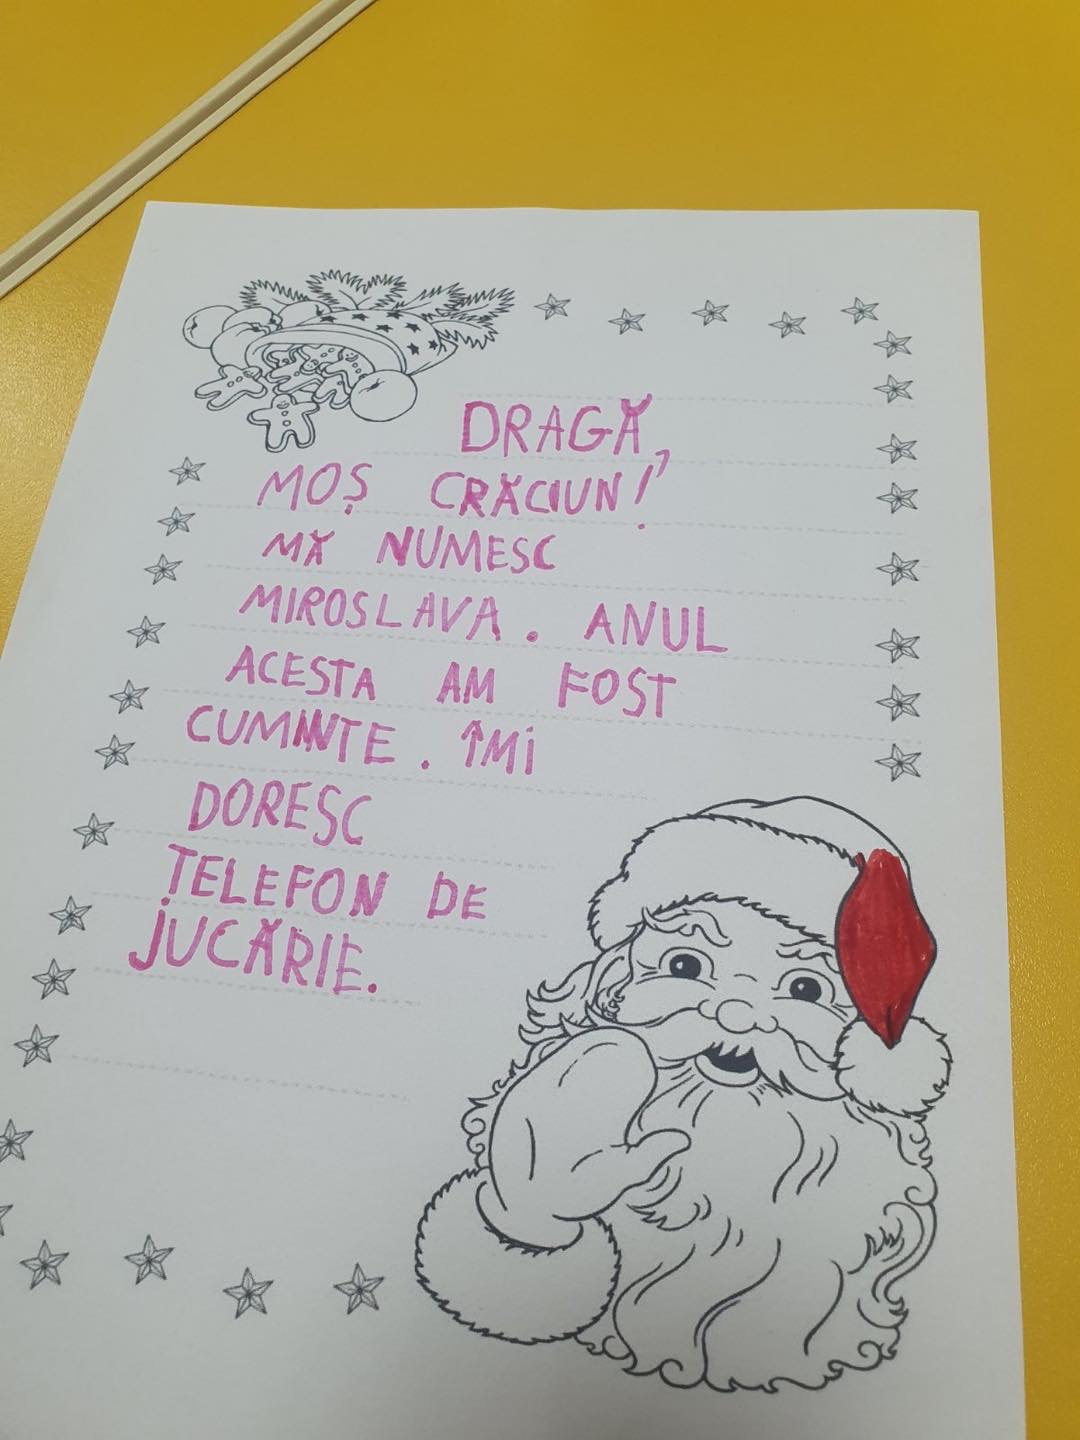 DRAGĂ,
MOȘ CRĂCIUN!
MĂ NUMESC
MIROSLAVA. ANUL
ACESTA AM FOST
CUMINTE. ÎMI
DORESC
TELEFON DE
JUCĂRIE.